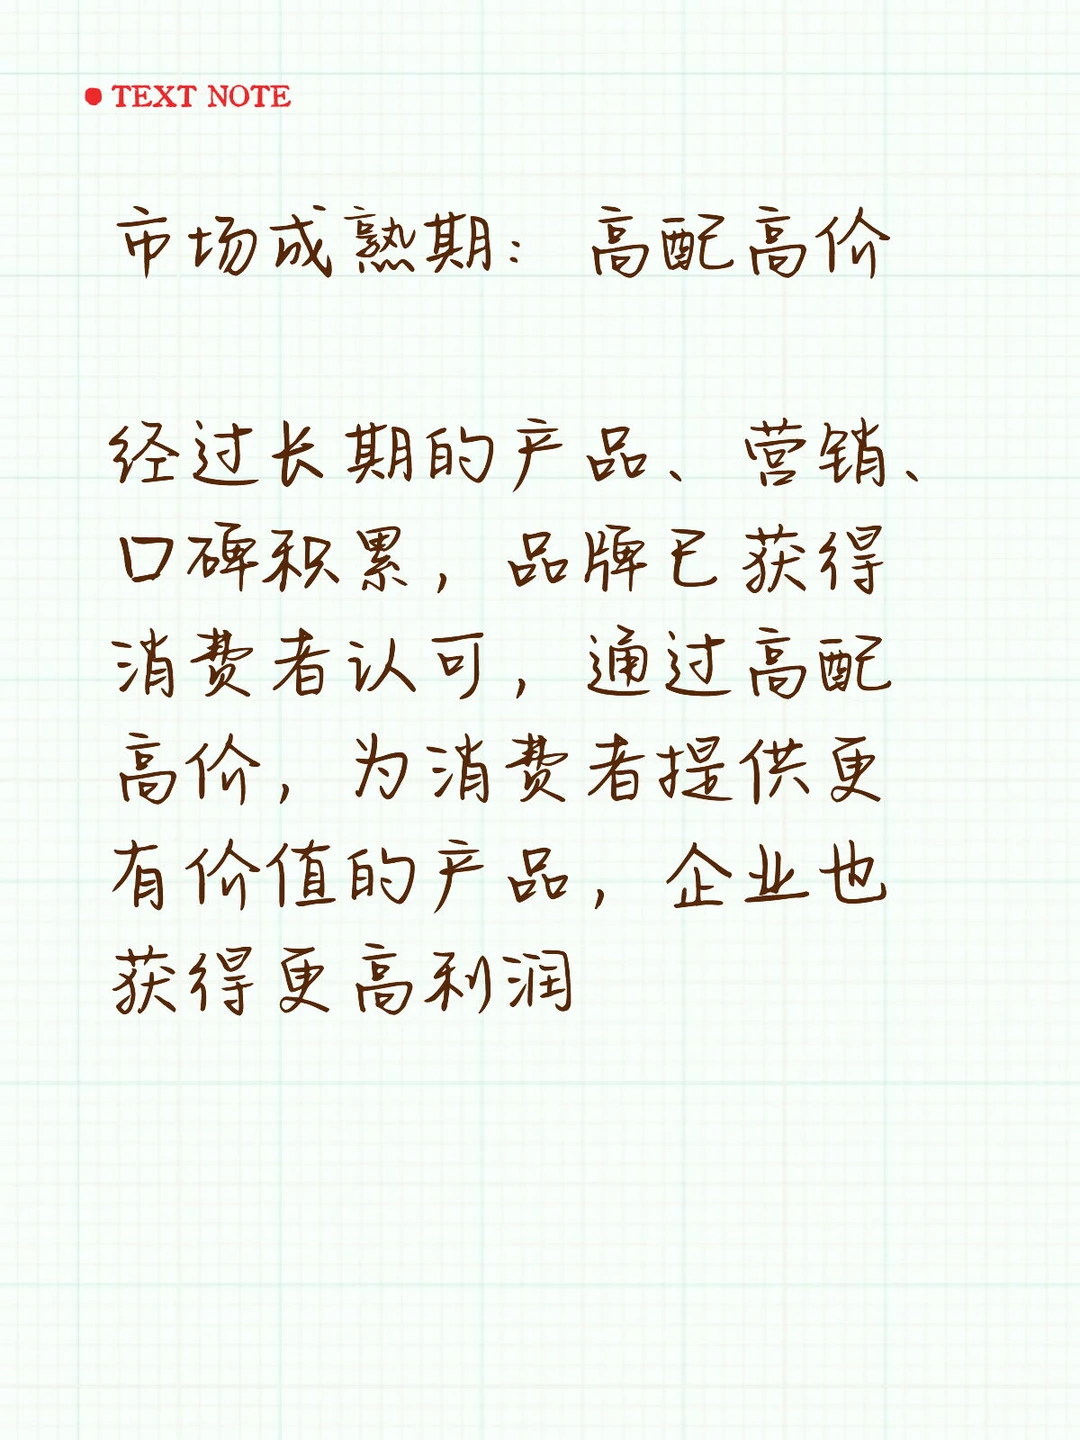 TEXT NOTE
市场成熟期：高配高价
经过长期的产品、营销、
口碑积累，品牌已获得
消费者认可，通过高配
高价，为消费者提供更
有价值的产品，企业也
获得更高利润